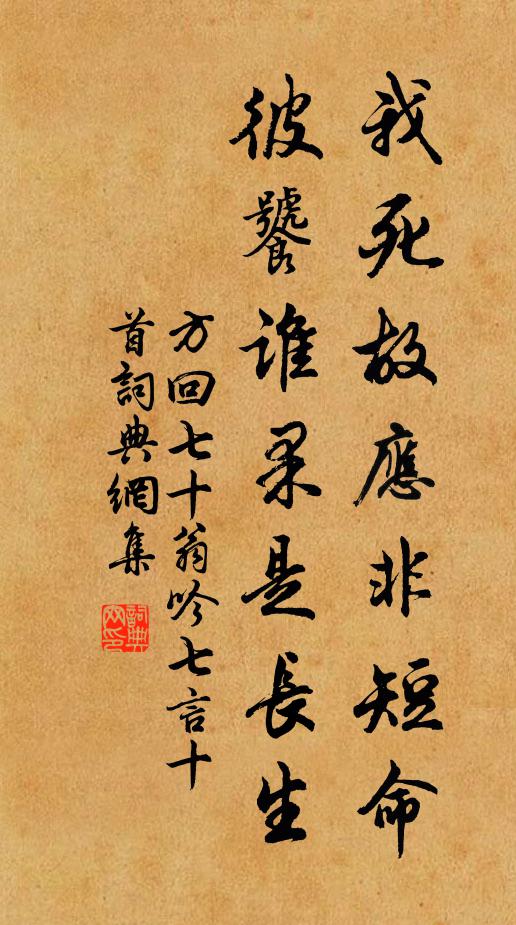 我死故應非短命
彼饕誰果是長生
方回七十翁吟七言十
首詞典網集
詞典
网印